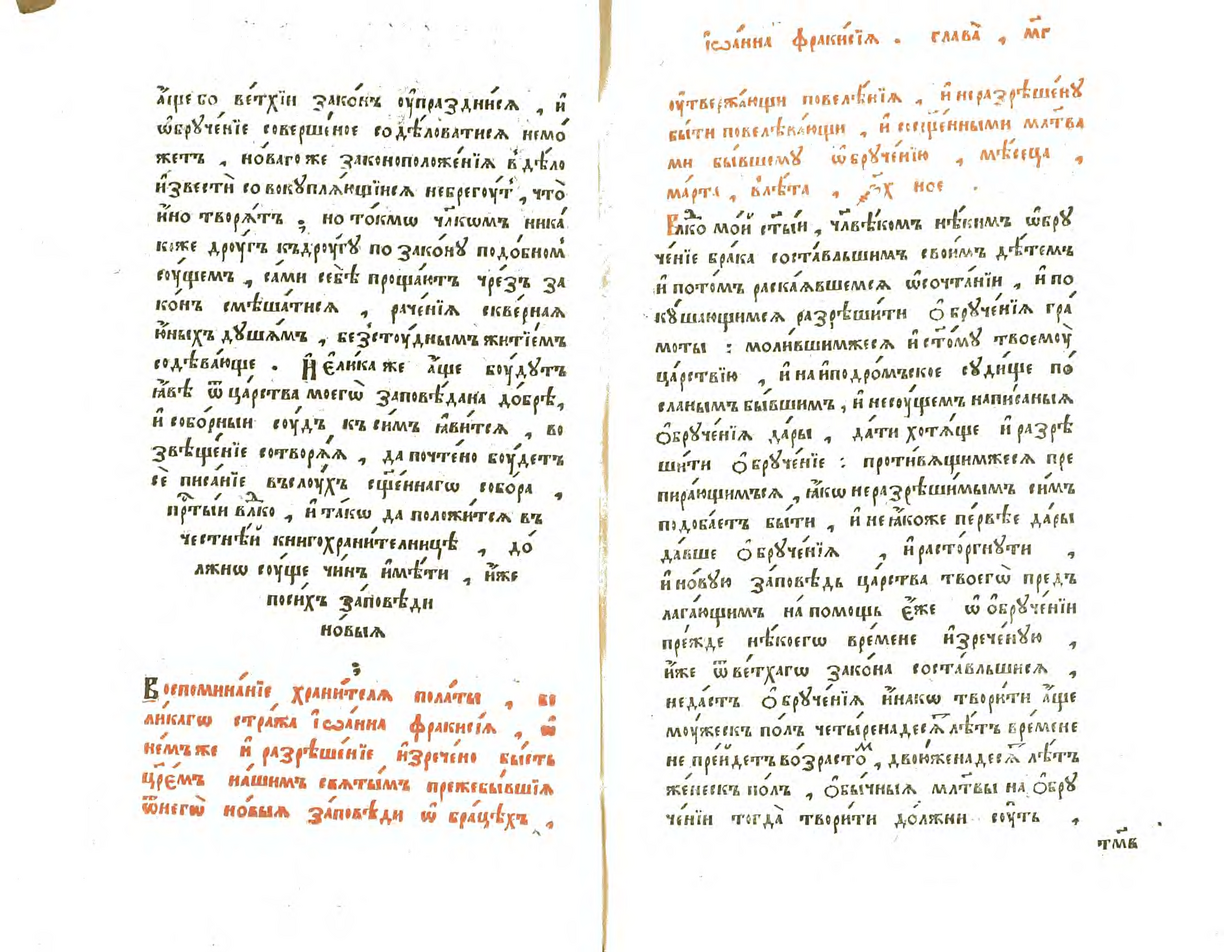 а҆́ще бо ве́тхїи зако́нъ ᲂу҆празднисѧ , и҆
ѡ҆брꙋче́нїе соверше́ное содѣ́ловатисѧ немо́
жетъ , но́вагоже законоположе́нїѧ в̾дѣ́ло
и҆звестѝ совокꙋплѧ́ющїисѧ небрегоу́т̾ , что̀
и҆́но творѧ́тъ ; но то́кмѡ чл҃кѡмъ ника́
коже дроу́гъ къдроу́гꙋ по зако́нꙋ подо́бном̾
соу́щемъ , са́ми себѣ̀ проща́ютъ чре́зъ за
ко́нъ смѣша́тисѧ , раче́нїѧ скве́рнаѧ
ю҆́ныхъ дꙋша́мъ , безстоу́дным̾ житїе́мъ
содѣва́юще . И҆ є҆ли́ка же а҆́ще боу́дꙋтъ
ꙗ҆́вѣ ѿ ца́рства моегѡ̀ заповѣ́дана до́брѣ,
и҆ собо́рныи соу́дъ къ си́мъ ꙗ҆ви́тсѧ , во
звѣще́нїе сотворѧ́ѧ , да почте́но боу́детъ
сѐ писа́нїе въслоу́хъ сщ҃е́ннагѡ собо́ра ,
прⷭ҇ты́и влⷣко , и҆ та́кѡ да положи́тсѧ въ
честнѣ́й книгохрани́телницѣ , до́
лжнѡ соу́ще чи́нъ и҆мѣ́ти , и҆́же
поси́хъ за́повѣди
но́выѧ
;
Воспомина́нїе храни́телѧ пола́ты , ве
ли́кагѡ стра́жа і҆ѡа́нна фракисі́ѧ , ѡ҆
не́мъже и҆ разрѣше́нїе и҆зрече́но бы́сть
цр҃е́мъ на́шимъ святы́мъ прежебы́вшїѧ
ѿнегѡ̀ но́выѧ за́повѣди ѡ҆ бра́цѣхъ ,
і҆ѡа́нна фракисі́ѧ . глава̀ , м҃г
ᲂу҆твержа́ющи повелѣ́нїѧ , и҆ неразрѣше́нꙋ
бы́ти повелѣва́ющи , и҆ сосщ҃е́нными мл҃тва
ми бы́вшемꙋ ѡ҆брꙋче́нїю , мѣ́сеца ,
ма́рта , в̾лѣ́та , ҂ѕ҃х ное .
Влⷣко мо́й ст҃ы́й , чл҃вѣ́комъ нѣ́кимъ ѡ҆брꙋ
че́нїе бра́ка соста́вльшимъ свои́мъ дѣ́темъ
и҆ пото́мъ раска́ѧвшемсѧ ѡ҆сочта́нїи , и҆ по
кꙋша́ющимсѧ разрѣши́ти о҆брꙋче́нїѧ гра́
моты : моли́вшимжесѧ и҆ ст҃о́мꙋ твоемоу̀
ца́рствїю , и҆ на и҆подро́мъское сꙋди́ще по́
сланымъ бы́вшимъ , и҆ несоу́щемъ напи́саныѧ
о҆брꙋче́нїѧ да́ры , да́ти хотѧ́ще и҆ разрѣ
ши́ти о҆брꙋче́нїе : проти́вѧщимжесѧ пре
пира́ющимъсѧ , ꙗ҆́кѡ неразрѣши́мымъ си́мъ
подоба́етъ бы́ти , и҆ не ꙗ҆́коже пе́рвѣе да́ры
да́вше о҆брꙋче́нїѧ , и҆ расто́ргнꙋти ,
и҆ но́вꙋю за́повѣдь ца́рства твоегѡ̀ предъ
лага́ющимъ на́ помощь є҆́же ѡ҆ о҆брꙋче́нїи
пре́жде нѣ́коегѡ вре́мене и҆зрече́нꙋю ,
и҆́же ѿ ве́тхагѡ зако́на соста́вльшисѧ ,
неда́стъ о҆брꙋче́нїѧ и҆на́кѡ твори́ти а҆́ще
моу́жескъ по́лъ четы́ренадесѧⷮ лѣ́тъ вре́мене
не пре́йдетъ во́зрастоⷨ , двоюженадесѧⷮ лѣ́тъ
же́нескъ по́лъ , о҆бы́чныѧ мл҃твы на о҆брꙋ
че́нїи тогда̀ твори́ти до́лжни соу́ть ,
тм҃в